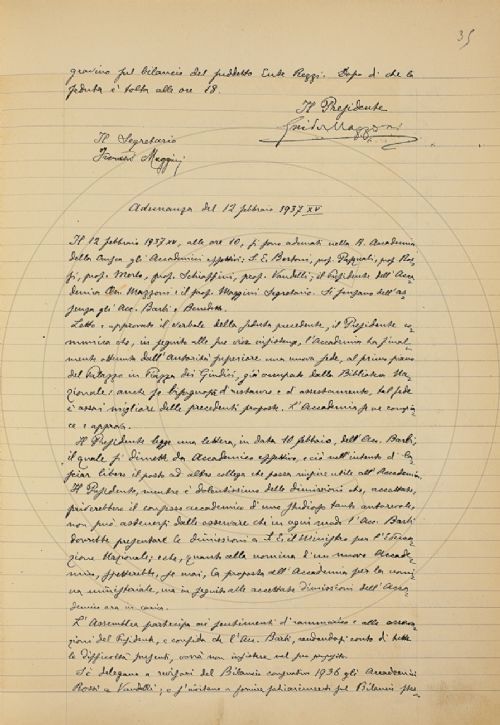 35
gravino sul bilancio del suddetto Ente Reggi. Dopo di che la
seduta è tolta alle ore 18.
Il Presidente
Guido Mazzoni
Il Segretario
Maggini
Adunanza del 12 febbraio 1937 XV
Il 12 febbraio 1937 XV, alle ore 10, si sono adunati nella R. Accademia
della Crusca gli Accademici effettivi: S. E. Bertoni, prof. Pasquali, prof. Ros-
si, prof. Merlo, prof. Schiaffini, prof. Vandelli; il Presidente dell'Acca-
demia Sen. Mazzoni e il prof. Maggini Segretario. Si scusano dell'as-
senza gli Acc. Barbi e Benedetti.
Letto e approvato il verbale della seduta precedente, il Presidente co-
munica che, in seguito alle sue vive insistenze, l'Accademia ha final-
mente ottenuta dall'Autorità superiore una nuova sede, al primo piano
del Palazzo in Piazza dei Giudici, già occupato dalla Biblioteca Na-
zionale: anche se bisognosa di restauro e d'assestamento, tal sede
è assai migliore delle precedenti proposte. L'Accademia se ne compia-
ce e approva.
Il Presidente legge una lettera, in data 10 febbraio, dell'Acc. Barbi,
il quale si dimette da Accademico effettivo, e ciò nell'intento di la-
sciar libero il posto ad altro collega che possa riuscire utile all'Accademia.
Il Presidente, mentre è dolentissimo delle dimissioni che, accettate,
priverebbero il consesso accademico d'uno studioso tanto autorevole,
non può astenersi dall'osservare che in ogni modo l'Acc. Barbi
dovrebbe presentare le dimissioni a S. E. il Ministro per l'Educa-
zione Nazionale; e che, quanto alla nomina d'un nuovo Accade-
mico, spetterebbe, se mai, la proposta all'Accademia per la nomi-
na ministeriale, ma in seguito alle accettate dimissioni dell'Acca-
demico ora in carica.
L'Assemblea partecipa ai sentimenti di rammarico e alle osserva-
zioni del Presidente, e confida che l'Acc. Barbi, rendendosi conto di tutte
le difficoltà presenti, vorrà non insistere nel suo proposito.
Si delegano a revisori del Bilancio consuntivo 1936 gli Accademici
Rossi e Vandelli; e s'invitano a fornire schiarimenti sul Bilancio